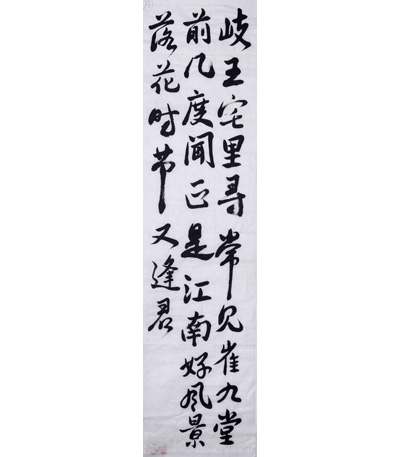 歧王宅里寻常见崔九堂
前几度闻正是江南好风景
落花时节又逢君